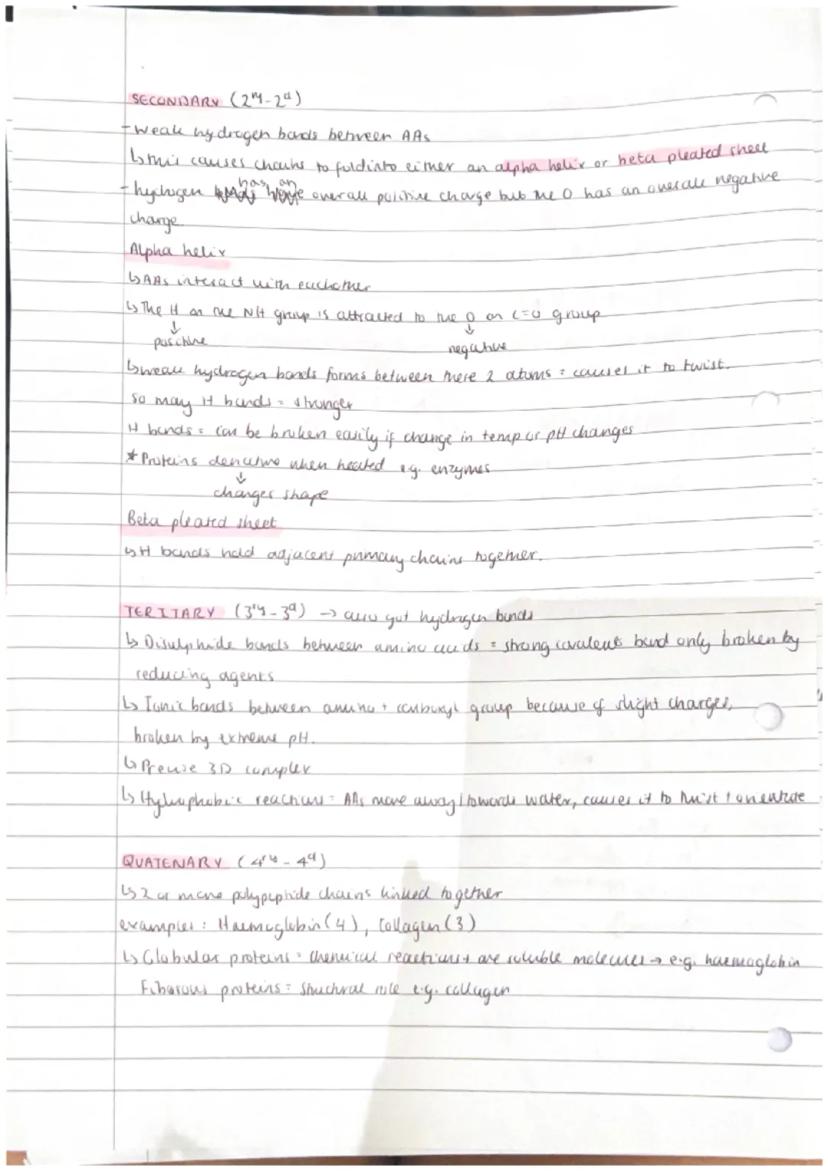 SECONDARY (2ry - 2d)
- Weak hydrogen bonds between AAs
↳ this causes chains to fold into either an alpha helix or beta pleated sheet
- hydrogen has an overall positive charge but the O has an overall negative
charge.
Alpha helix
↳ AAs interact with eachother
↳ The H on the NH group is attracted to the O on C=O group
↓ ↓
positive negative
↳ weak hydrogen bonds forms between these 2 atoms = causes it to twist.
so many H bonds = stronger
H bonds = can be broken easily if change in temp or pH changes
* Proteins denature when heated e.g. enzymes
↓
changes shape
Beta pleated sheet
↳ H bonds hold adjacent primary chains together.
TERITARY (3ry - 3d) → also got hydrogen bonds
↳ Disulphide bonds between amino acids = strong covalents bond only broken by
reducing agents
↳ Ionic bonds between amino + carboxyl group because of slight charges,
broken by extreme pH.
↳ Precise 3D complex
↳ Hydrophobic reactions = AAs move away/towards water, causes it to twist + orientate
QUATENARY (4ry - 4d)
↳ 2 or more polypeptide chains linked together
examples : Haemoglobin (4), Collagen (3)
↳ Globular proteins = chemical reactions + are soluble molecules → e.g. haemoglobin
Fibarous proteins = structural role e.g. collagen